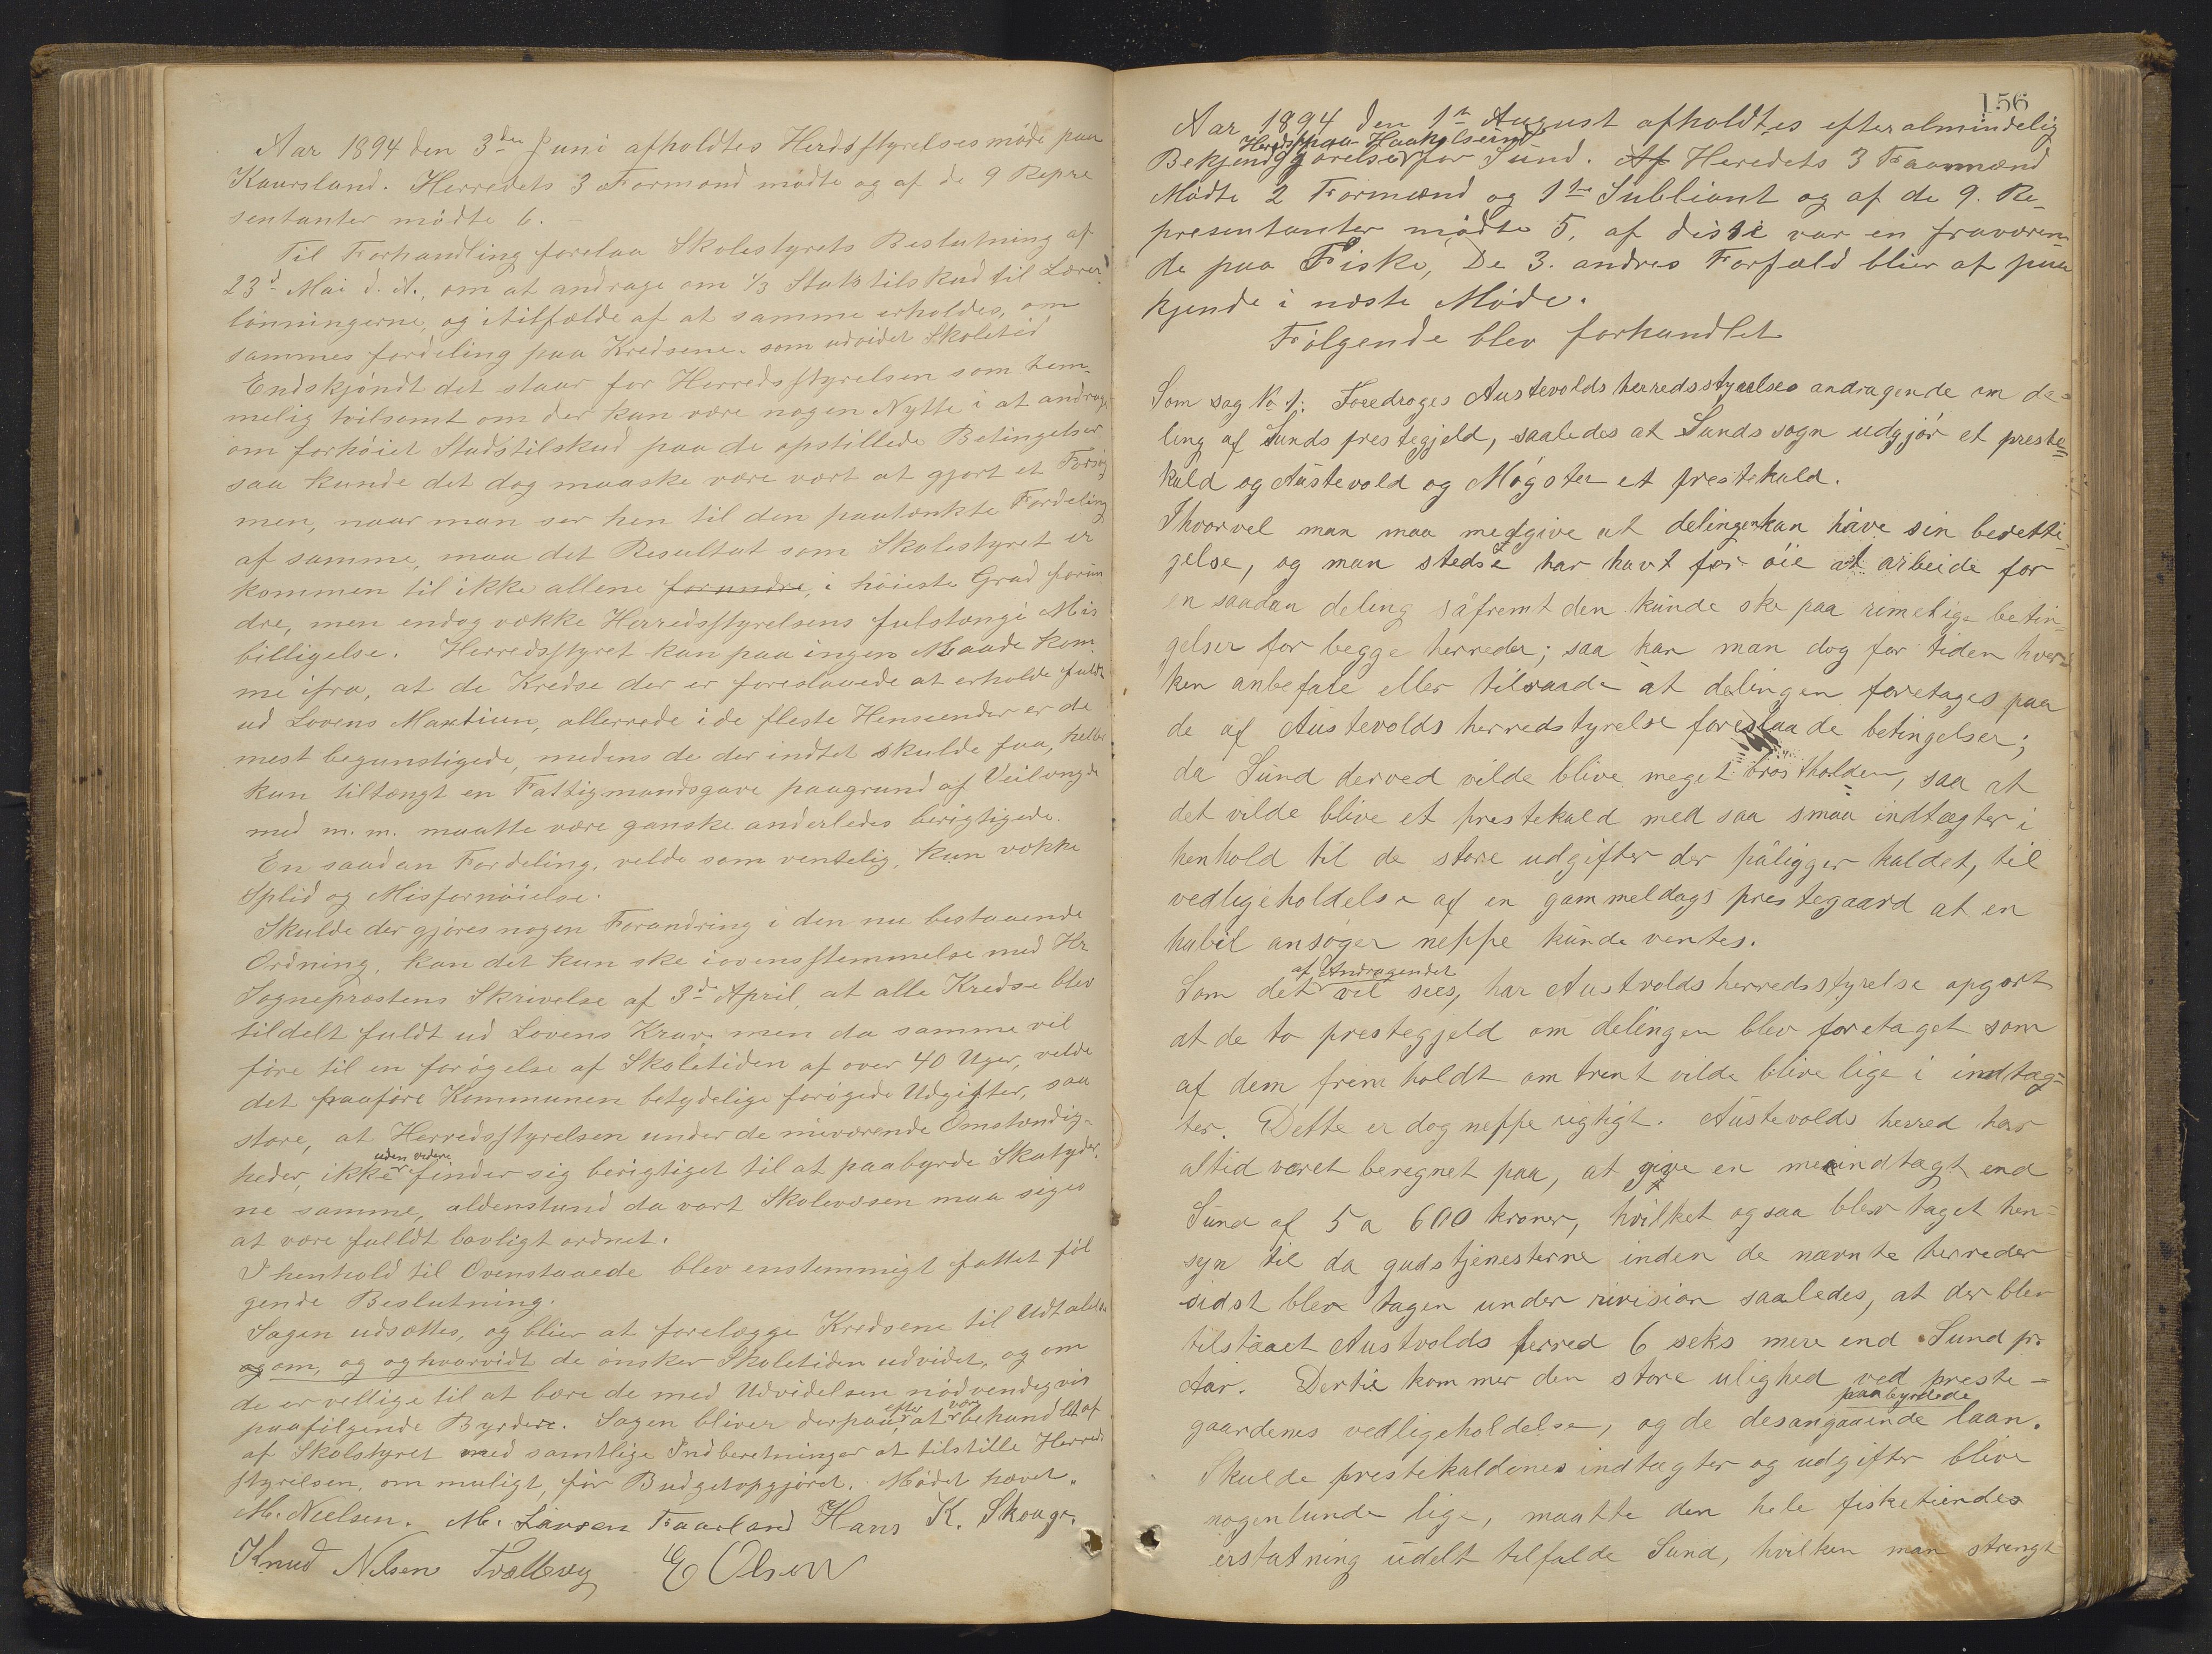 Aar 1894 den 3den Juni afholdtes Herdsstyrelsesmøde paa
Kaursland. Herredets 3 Formænd mødte og af de 9 Repre
sentanter mødte 6. –
Til Forhandling forelaa Skolestyrets Beslutning af
23d Mai d. A., om at andrage om 1/3 Statstilskud til Lærer
lønningerne, og i tilfælde af at samme erholdes, om
sammes fordeling paa Kredsene. som udvidet Skoletid
Endskjøndt det staar for Herredsstyrelsen som tem-
melig tvilsomt om der kan være nogen Nytte i at andrage
om forhøiet Stadstilskud paa de opstillede Betingelser
saa kunde det dog maaske være vært at gjort et Forsøg
men, naar man ser hen til den paatænkte Fordeling
af samme, maa det Resultat som Skolestyret er
kommen til ikke allene forundre, i høieste Grad forun
dre, men endog vække Herredsstyrelsens fulstængi Mis
billigelse. Herredsstyret kan paa ingen Maade kom
me ifra, at de Kredse der er foreslaaede at erholde fuldt
ud Lovens Maxtium, allerrede i de fleste Henseender er de
mest begunstigede, medens de der indtet skulde faa, heller
kun tiltængt en Fattigmandsgave paagrund af Veilængde
med m. m. maatte være ganske anderledes berigtigede.
En saadan Fordeling, velde som ventelig, kun vække
Splid og Misfornøielse.
Skulde der gjøres nogen Forandring i den nu bestaaende
Ordning, kan det kun ske i ovensstemmelse med Hr
Sogneprestens Skrivelse af 3de April, at alle Kredse blev
tildelt fuldt ud Lovens Krav, men da samme vil
føre til en forøgelse af Skoletiden af over 40 Uger, velde
det paaføre Kommunen betydelige forøgede Udgifter, saa
store, at Herredsstyrelsen under de nuværende Omstændig-
uden videre
heder, ikke finder sig berigtiget til at paabyrde Skatyder,
ne samme, aldenstund da vort Skolevæsen maa siges
at være fulldt lovligt ordnet.
I henhold til Ovenstaaede blev enstemmigt fattet føl
gende Beslutning.
Sagen udsættes, og blier at forelægge Kredsene til Udtalelse
og om, og og hvorvidt de ønsker Skoletiden udvidet, og om
de er vellige til at bære de med Udvidelsen nødvendigvis
efter være
paafølgende Byrder. Sagen bliver derpaa, at behandlet af
af Skolstyret med samtlige Indberetninger at tilstille Herreds
styrelsen, om muligt, før Budgetopgjøret. Mødet hævet.
M. Nielsen. M. Larsen Faarland Hans K. Skouge.
Knud Nilsen Trællevig E Olsen
156
Aar 1894 den 1st August afholdtes efter almindelig
Heredsh paa Haakolsund
Bekjendgjørelse for Sund. Af Heredets 3 Faarmænd
Mødte 2 Formænd og 1ste Subliant og af de 9. Re-
presentanter mødte 5, af disse var en fraværen
de paa Fiske, De 3. andres Forfald blier at paa
kjende i næste Møde.
Følgende blev forhandlet
Som sag No 1: Foredroges Austevolds herredsstyrelses andragende om de=
ling af Sunds prestegjeld, saaledes at Sunds sogn udgjør et preste=
kald og Austevold og Møgster et prestekald.
Ihvorvel man maa medgive at delingen kan have sin beretti
gelse, og man stedse har havt for øie at arbeide for
en saadan deling såfremt den kunde ske paa rimelige betin
gelser for begge herreder; saa kan man dog for tiden hver=
ken anbefale eller tilraade at delingen foretages paa
de af Austevolds herredstyrelse foreslaade betingelser;
da Sund derved vilde blive meget brøstholden, saa at
det vilde blive et prestekald med saa smaa indtægter i
henhold til de store udgifter der påligger kaldet, til
vedligeholdelse af en gammeldags prestegaard at en
habil ansøger neppe kunde ventes.
af Andragendet
Som det vil sees, har Austvolds herredsstyrelse opgort
at de to prestegjeld om delingen blev foretaget som
af dem fremholdt omtrent vilde blive lige i indtæg=
ter. Dette er dog neppe rigtigt. Austevolds herred har
altid været beregnet paa, at give en merindtægt end
Sund af 5 a 600 kroner, hvilket ogsaa blev taget hen=
syn til da gudstjenesterne inden de nævnte herreder
sidst blev tagen under rivision saaledes, at der blev
tilstaaet Austvolds herred 6 seks mere end Sund pr.
Aar. Dertil kommer den store ulighed ved preste=
paabyrdede
gaardenes vedligeholdelse, og de desangaaende laan.
Skulde prestekaldenes indtægter og udgifter blive
nogenlunde lige, maatte den hele fisketiendes
erstatning udelt tilfalde Sund, hvilken man strengt